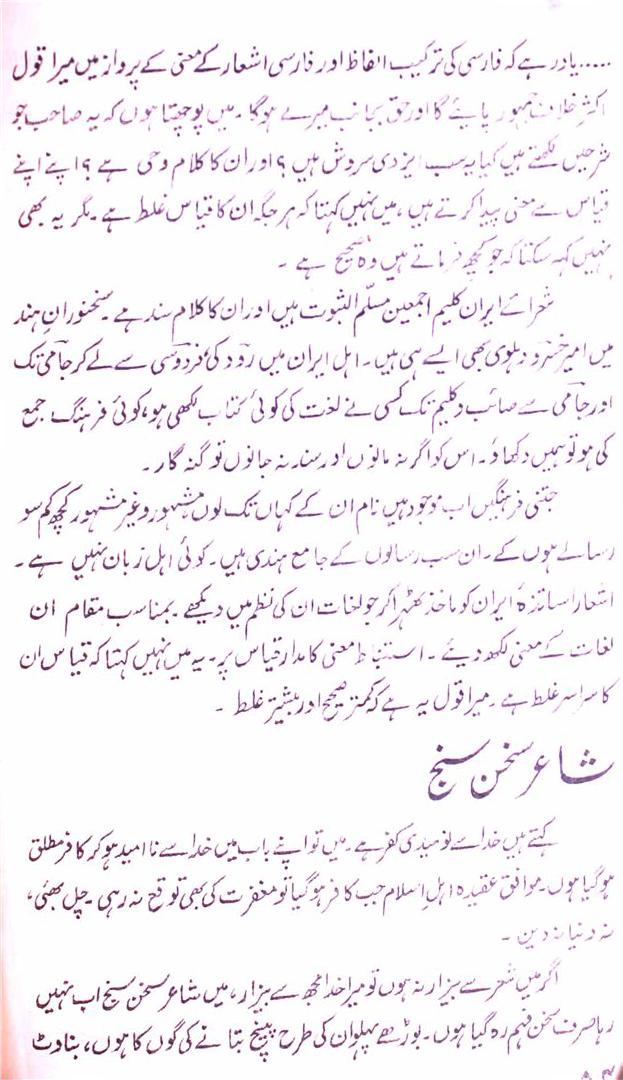 .....یاد رہے کہ فارسی کی ترکیب الفاظ اور فارسی اشعار کے معنی کے پرواز میں میرا قول
اکثر خلاف جمہور پائیے گا اور حق بجانب میرے ہوگا۔ میں پوچھتا ہوں کہ یہ صاحب جو
شرحیں لکھتے ہیں کیا یہ سب ایزدی سروش ہیں؟ اور ان کا کلام وحی ہے؟ اپنے اپنے
قیاس سے معنی پیدا کرتے ہیں، میں نہیں کہتا کہ ہر جگہ ان کا قیاس غلط ہے۔ مگر یہ بھی
نہیں کہہ سکتا کہ جو کچھ فرماتے ہیں وہ صحیح ہے۔
شعرائے ایران کلیم اجمعین مسلّم الثبوت ہیں اور ان کا کلام سند ہے۔ سخنورانِ ہند
میں امیر خسرو دہلوی بھی ایسے ہی ہیں۔ اہل ایران میں رودکی فردوسی سے لے کر جامی تک
اور جامی سے صائب و کلیم تک کسی نے لغت کی کوئی کتاب لکھی ہو، کوئی فرہنگ جمع
کی ہو تو ہمیں دکھاؤ۔ اس کو اگر نہ مانوں اور سند نہ جانوں تو گنہ گار۔
جتنی فرہنگیں اب موجود ہیں نام ان کے کہاں تک لوں مشہور و غیر مشہور کچھ کم سو
رسالے ہوں گے۔ ان سب رسالوں کے جامع ہندی ہیں۔ کوئی اہل زبان نہیں ہے۔
اشعار اساتذۂ ایران کو ماخذ ٹھہرا کر جو لغات ان کی نظم میں دیکھے۔ بمناسب مقام ان
لغات کے معنی لکھ دیئے۔ استنباط معنی کا مدار قیاس پر۔ یہ میں نہیں کہتا کہ قیاس ان
کا سراسر غلط ہے۔ میرا قول یہ ہے کہ کمتر صحیح اور بیشتر غلط۔
شاعر سخن سنج
کہتے ہیں خدا سے نومیدی کفر ہے۔ میں تو اپنے باب میں خدا سے نا امید ہو کر کافر مطلق
ہو گیا ہوں۔ موافق عقیدہ اہلِ اسلام جب کافر ہو گیا تو مغفرت کی بھی توقع نہ رہی۔ چل بھئی،
نہ دنیا نہ دین۔
اگر میں شعر سے بیزار نہ ہوں تو میرا خدا مجھ سے بیزار، میں شاعر سخن سنج اب نہیں
رہا صرف سخن فہم رہ گیا ہوں۔ بوڑھے پہلوان کی طرح پیچ بتانے کی گوں کا ہوں، بناوٹ